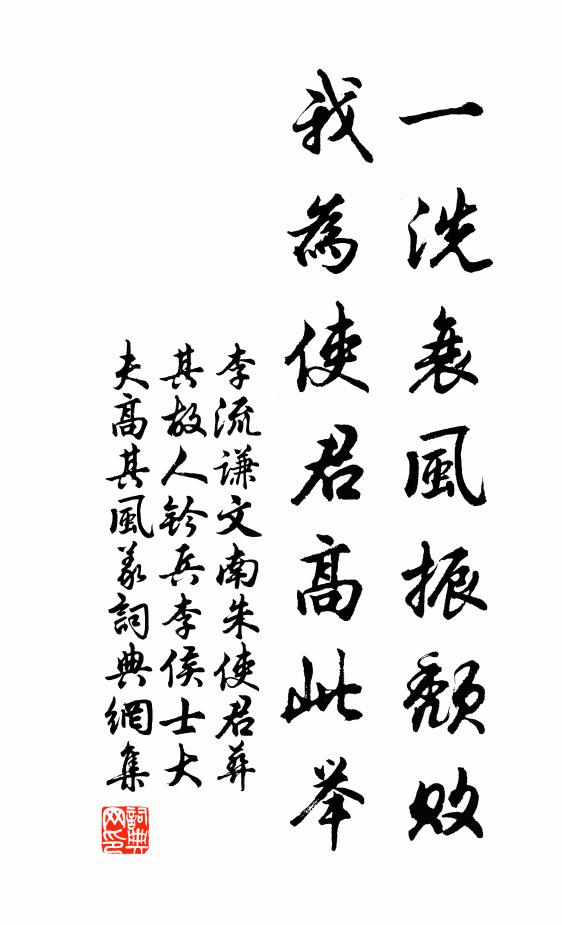 一洗衰風振頹敗
我為使君高此举
李流謙文南朱使君葬
其故人鈐兵李侯士大
夫高其風義詞典網集
詞典网印